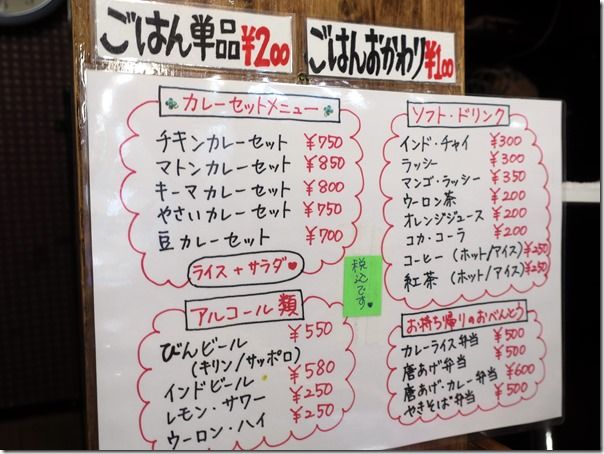 ごはん単品¥200
ごはんおかわり¥100
カレーセットメニュー
チキンカレーセット ¥750
マトンカレーセット ¥850
キーマカレーセット ¥800
やさいカレーセット ¥750
豆カレーセット ¥700
ライス+サラダ♥
アルコール類
びんビール ¥550
(キリン/サッポロ)
インドビール ¥580
レモン・サワー ¥250
ウーロン・ハイ ¥250
税込です♥
ソフト・ドリンク
インド・チャイ ¥300
ラッシー ¥300
マンゴ・ラッシー ¥350
ウーロン茶 ¥200
オレンジジュース ¥200
コカ・コーラ ¥200
コーヒー(ホット/アイス)¥250
紅茶(ホット/アイス)¥250
お持ち帰りのおべんとう
カレーライス弁当 ¥500
唐あげ弁当 ¥500
唐あげ・カレー弁当 ¥600
やきそば弁当 ¥500